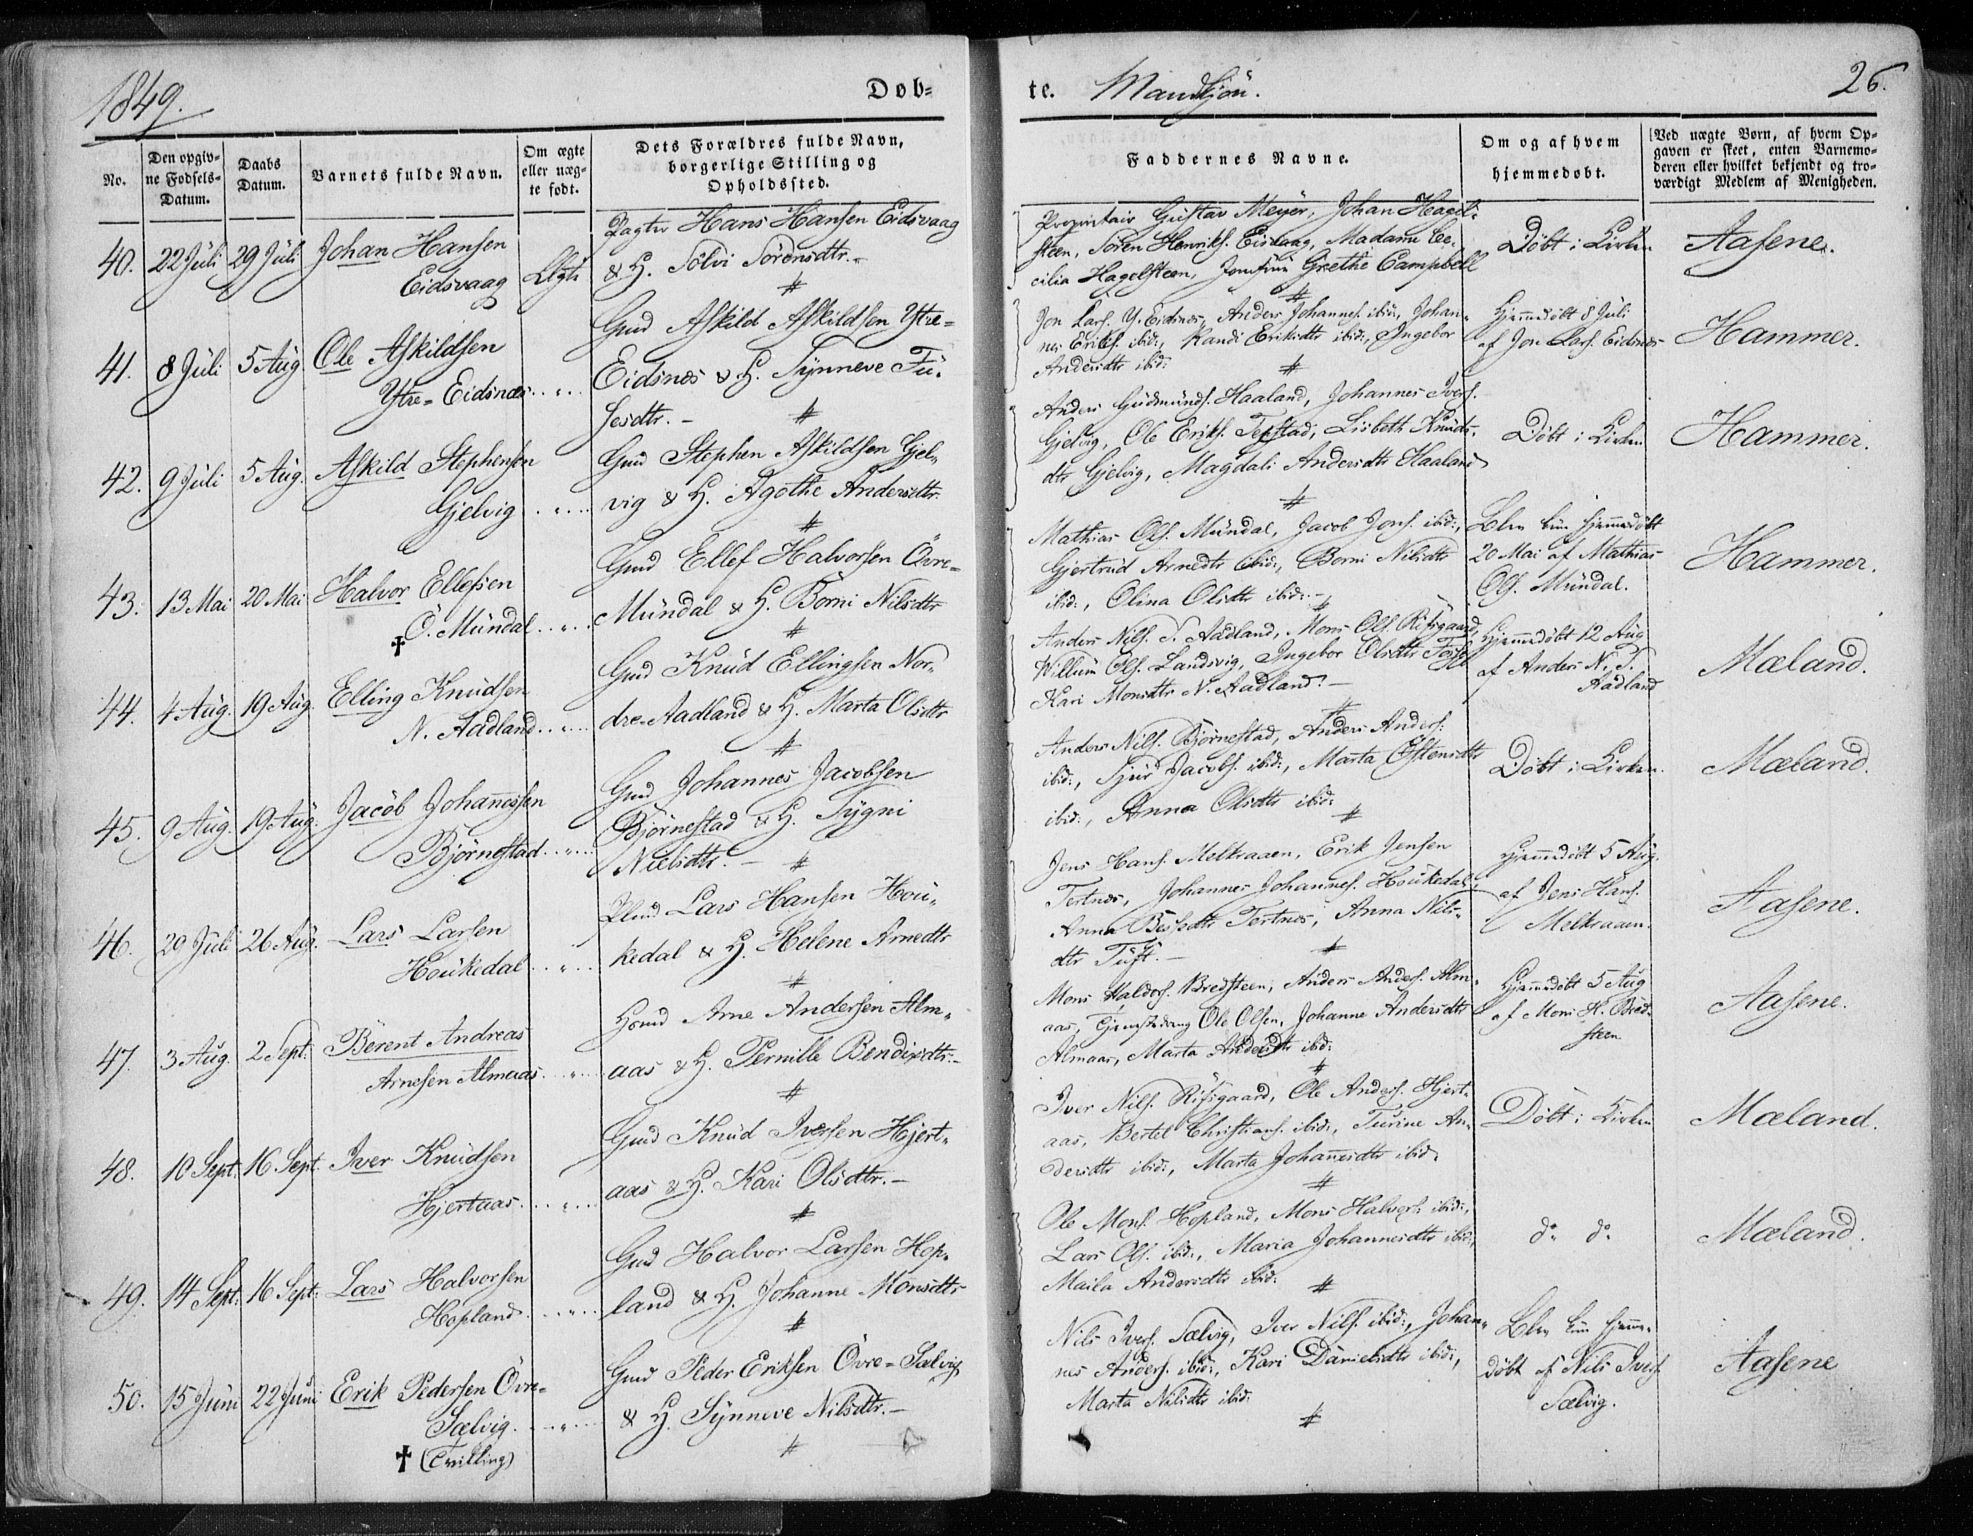 1849.
Døb-
te. Mandkjön.
26.
No.
Den opgiv-
ne Fødsels-
Datum.
Daabs
Datum.
Barnets fulde Navn.
Om ægte
eller uæg-
te født.
Dets Forældres fulde Navn,
borgerlige Stilling og
Opholdssted.
Faddernes Navne.
Om og af hvem
hjemmedøbt.
Ved uægte Børn, af hvem Op-
gaven er skeet, enten Barnemo-
deren eller hvilket bekjendt og tro-
værdigt Medlem af Menigheden.
40. 22 Juli 29 Juli Johan Hansen
Eidsvaag Ægte
Hans Hansen Eidsvaag
& H. Sölvi Sörensdtr.-
Gustav Meyer, Johan Hagel-
steen, Sören Henriks. Eidsvaag, Madame Ce-
cilia Hagelsteen, Grethe Campbell
Döbt i Kirken
Aasene.
41. 8 Juli 5 Aug. Ole Askildsen
Ytre-Eidsnæs
Gmd Askild Askildsen Ytre-
Eidsnes & H. Synneve Tu-
fesdtr.-
Jon Lars. Y. Eidsnes, Anders Johannes. ibid:, Johan-
nes Eriks. ibid:, Randi Eriksdtr ibid:, Ingebor
Andersdtr ibid:
Hjemmedöbt 8 Juli
af Jon Lars. Eidsnes
Hammer.
42. 9 Juli 5 Aug. Askild Stephensen
Gjelvig
Gmd Stephen Askildsen Gjel-
vig & H. Agothe Andersdtr.
Anders Gudmunds. Haaland, Johannes Ivers.
Gjelvig, Ole Eriks. Tepstad, Lisbeth Knuds-
dtr Gjelvig, Magdali Andersdtr Haaland
Döbt i Kirken
Hammer.
43. 13 Mai 20 Mai Halvor Ellefsen
Ö. Mundal
†
Gmd Ellef Halvorsen Övre-
Mundal & H. Börni Nilsdtr
Mathias Ols. Mundal, Jacob Jons. ibid:,
Gjertrud Arnedtr ibid:, Borni Nilsdtr
ibid:, Olina Olsdtr ibid:-
Blev kun hjemmedöbt
20 Mai af Mathias
Ols. Mundal.
Hammer.
44. 4 Aug. 19 Aug. Elling Knudsen
N. Aadland
Gmd Knud Ellingsen Nor-
dre-Aadland & H. Marta Olsdtr
Anders Nils. S. Aadland, Mons Ols. Risgaard,
Willum Ols. Landsvig, Ingebor Olsdtr
Kari Monsdtr N. Aadland.-
Hjemmedöbt 12 Aug
af Anders N. S.
Aadland
Mæland.
45. 9 Aug. 19 Aug. Jacob Johannessen
Björnestad
Gmd Johannes Jacobsen
Björnestad & H. Sygni
Nielsdtr.-
Anders Nils. Björnestad, Anders Anders.
ibid:, Sjur Jacobs. ibid:, Marta Östensdtr
ibid:, Anna Olsdtr ibid:
Döbt i Kirken.
Mæland.
46. 20 Juli 26 Aug. Lars Larsen
Houkedal
Lars Hansen Hou-
kedal & H. Helene Arnedtr
Jens Hans. Melkraaen, Erik Jensen
Tertnes, Johannes Johannes. Houkedal
Anna Tertnes, Anna Nils-
dtr Tuft.-
Hjemmedöbt 5 Aug.
af Jens Hans.
Melkraaen.
Aasene.
47. 3 Aug. 2 Sept. Berent Andreas
Arnesen Almaas
Arne Andersen Alm-
aas & H. Pernille Bendixdtr.-
Mons Haldors. Bredsteen, Anders Anders. Alm-
aas, Ole Olsen, Johanne Andersdtr
Almaas, Marta Andersdtr ibid:
Hjemmedöbt 5 Aug
af Mons H. Bred-
steen
Aasene.
48. 10 Sept. 16 Sept. Iver Knudsen
Hjertaas
Gmd Knud Iversen Hjert-
aas & H. Kari Olsdtr.-
Iver Nils. Risgaard, Ole Anders. Hjert-
aas, Bertel Christians. ibid:, Turine An-
dersdtr ibid:, Marta Johannesdtr ibid:
Döbt i Kirken
Mæland.
49. 14 Sept. 16 Sept. Lars Halvorsen
Hopland
Gmd Halvor Larsen Hop-
land & H. Johanne Monsdtr
Ole Mons. Hopland, Mons Halvors. ibid:,
Lars Ols. ibid:, Maria Johannesdtr ibid:,
Maila Andersdtr ibid:
do do
Mæland.
50. 15 Juni 22 Juni Erik Pedersen Övre-
Sælvig
† (Tvilling)
Gmd Peder Eriksen Övre-Sælvig
& H. Synneve Nilsdtr.-
Nils Ivers. Sælvig, Iver Nils. ibid:, Johan-
nes Anders. ibid:, Kari Danielsdtr ibid:,
Marta Nilsdtr ibid:
Blev kun hjemme-
döbt af Nils Ivers.
Sælvig.
Aasene